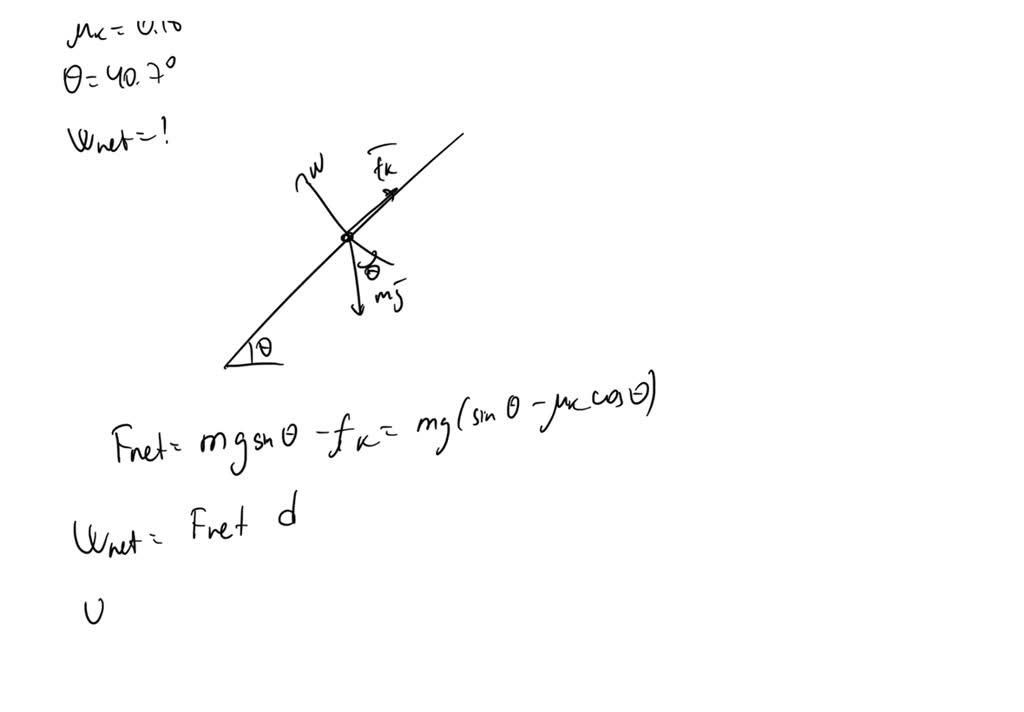 μk = 0.10
θ = 40.7°
Wnet = !
N
fk
θ
mg
θ
Fnet = mg sin θ - fk = mg (sin θ - μk cos θ)
Wnet = Fnet d